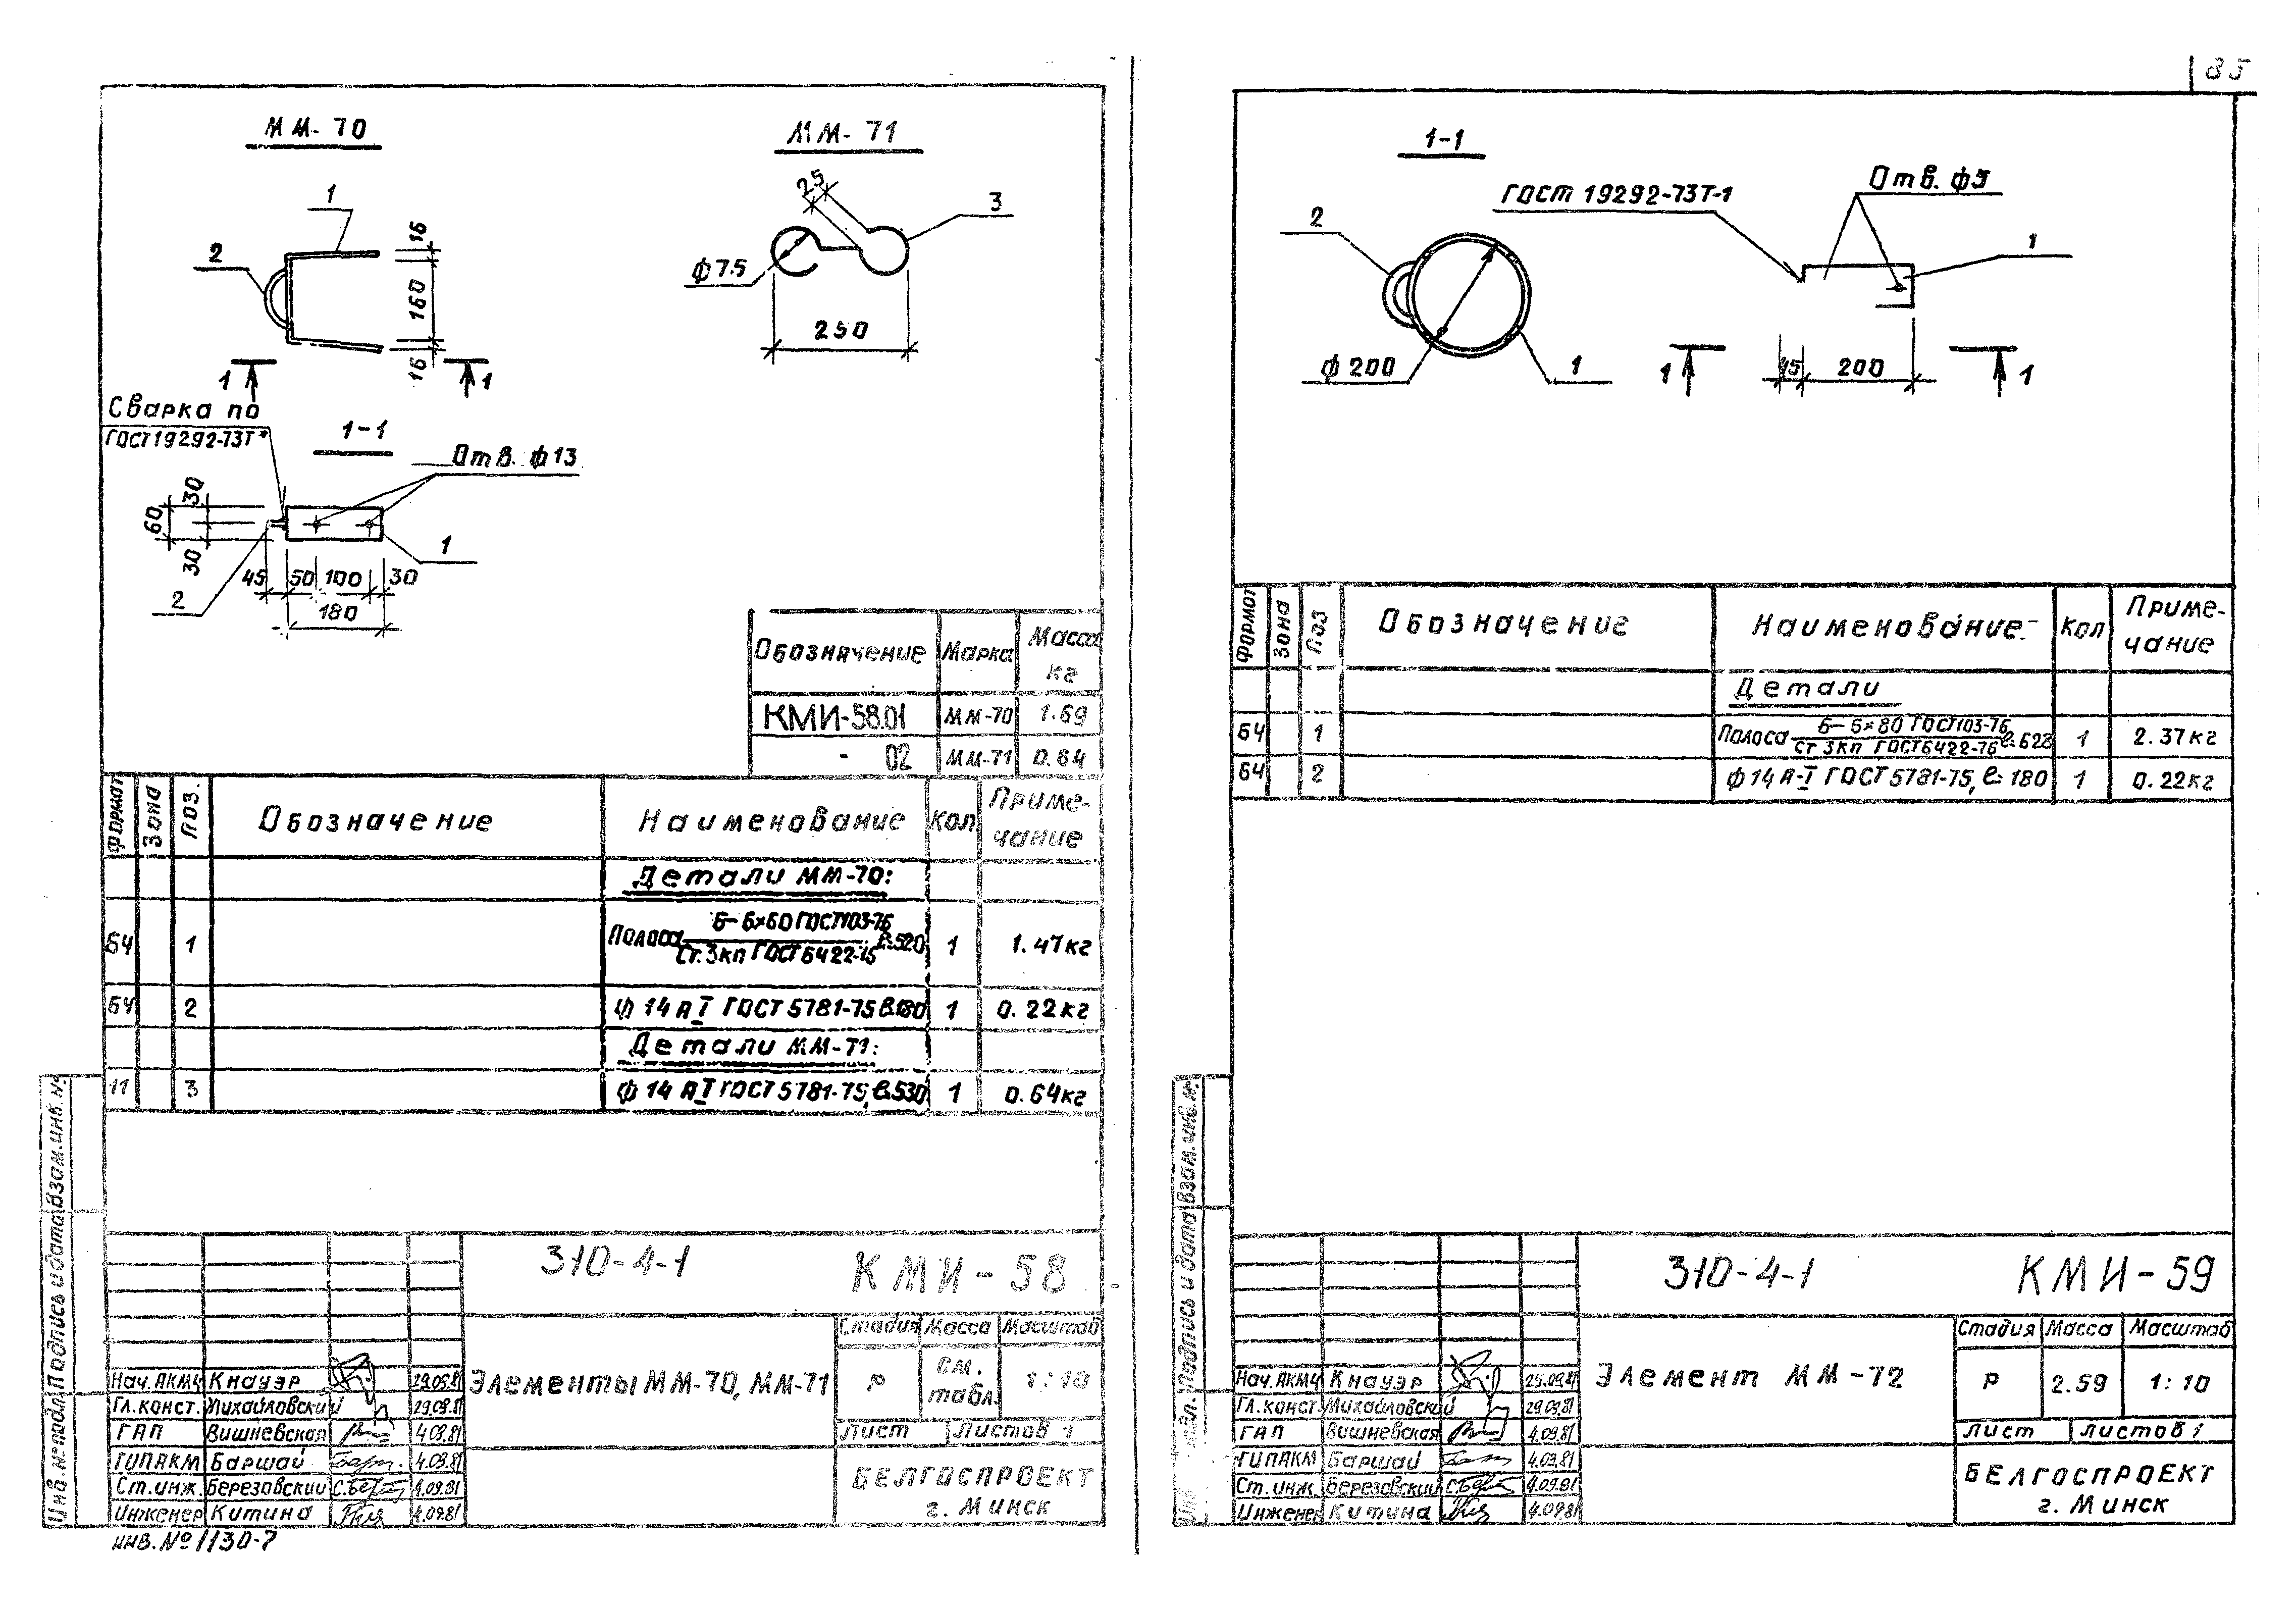 85
ММ-70
1
2
16
160
16
1 1
Сварка по
ГОСТ 19292-73Т*
1-1
Отв. ф13
30
60
30
1
45 50 100 30
2
180
ММ-71
25
3
ф75
250
Обозначение Марка Масса кг
КМИ-58.01 ММ-70 1.69
- 02 ММ-71 0.64
Формат Зона Поз. Обозначение Наименование Кол Приме-
чание
Детали ММ-70:
БЧ 1 Полоса Б-6×60 ГОСТ103-76 ℓ=520 1 1.47кг
Ст.3кп ГОСТ6422-76
БЧ 2 ф14 АI ГОСТ 5781-75 ℓ=180 1 0.22кг
Детали ММ-71:
11 3 ф14 АI ГОСТ 5781-75, ℓ=530 1 0.64кг
Инв.№подл. Подпись и дата Взам.инв.№
310-4-1 КМИ-58
Стадия Масса Масштаб
Элементы ММ-70, ММ-71 Р см. табл. 1:10
Лист Листов 1
БЕЛГОСПРОЕКТ
г. Минск
Нач.АКМ4 Кнауэр 29.09.81
Гл.конст. Михайловский 29.09.81
ГАП Вишневская 4.09.81
ГИПАКМ Баршай 4.09.81
Ст.инж. Березовский 4.09.81
Инженер Китина 4.09.81
инв.№ 1130-7
1-1
2
ф200
1
ГОСТ 19292-73Т-1
Отв. ф5
1
1 1
45 200
Формат Зона Поз Обозначение Наименование Кол Приме-
чание
Детали
БЧ 1 Полоса Б-6×80 ГОСТ103-76 ℓ=628 1 2.37кг
Ст 3кп ГОСТ6422-76
БЧ 2 ф14 А-I ГОСТ 5781-75, ℓ=180 1 0.22кг
Подпись и дата Взам.инв.№
310-4-1 КМИ-59
Стадия Масса Масштаб
Элемент ММ-72 Р 2.59 1:10
Лист Листов 1
БЕЛГОСПРОЕКТ
г. Минск
Нач.АКМ4 Кнауэр 29.09.81
Гл.конст. Михайловский 29.09.81
ГАП Вишневская 4.09.81
ГИПАКМ Баршай 4.09.81
Ст.инж. Березовский 4.09.81
Инженер Китина 4.09.81